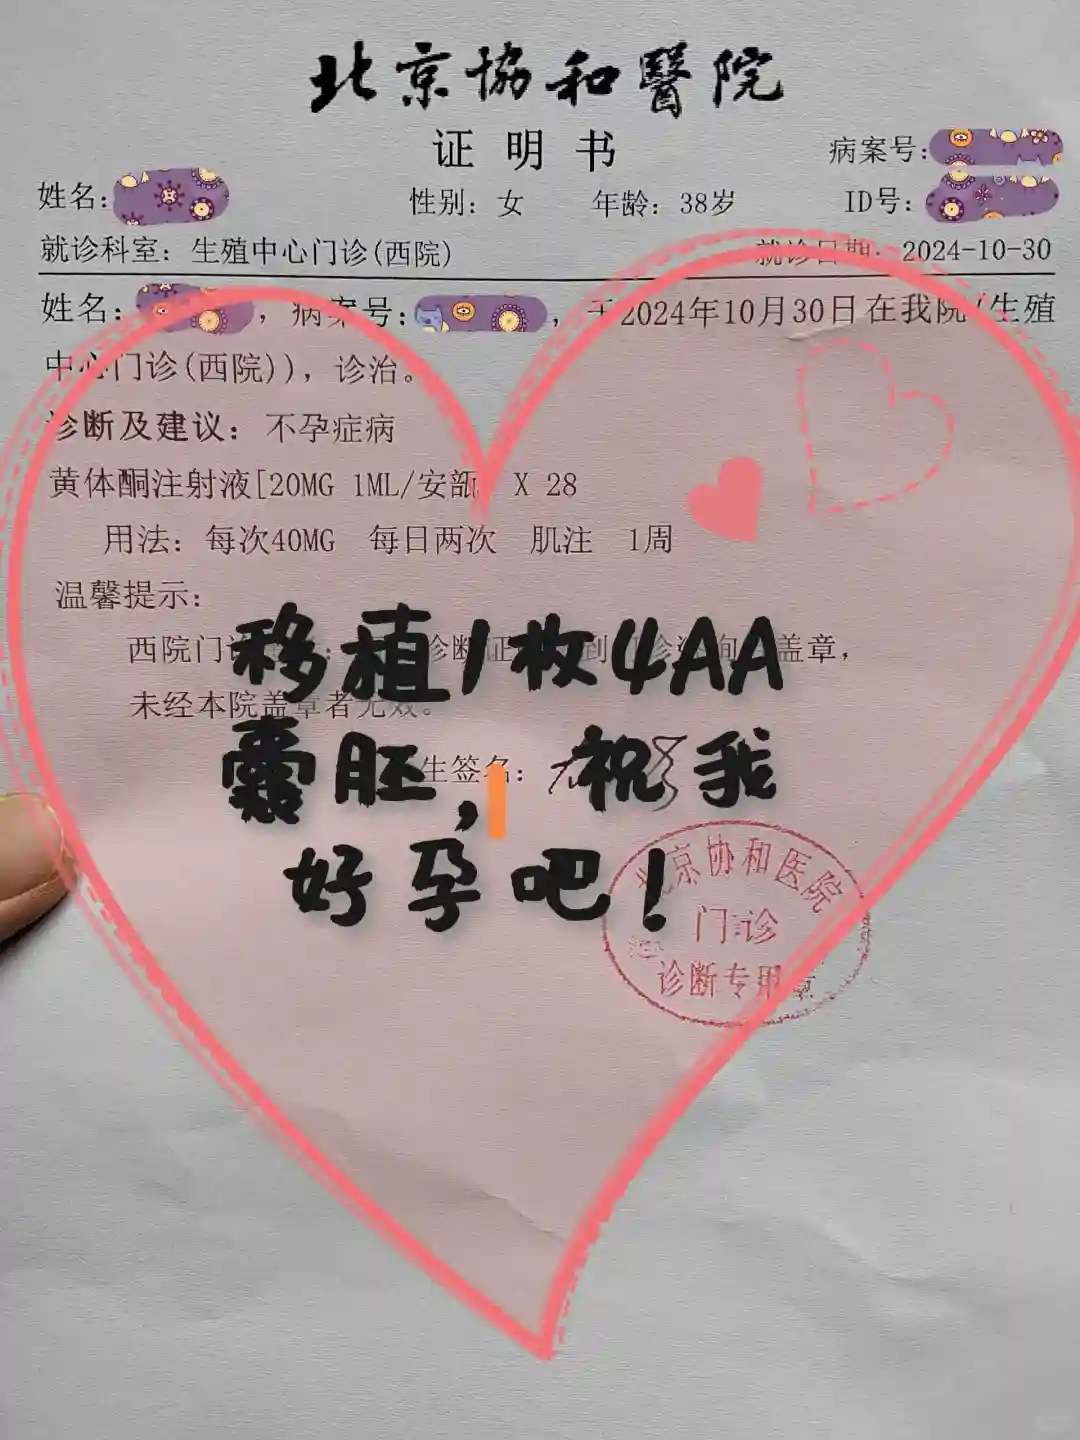 北京協和醫院
证明书
病案号:
姓名: 性别: 女 年龄: 38岁 ID号:
就诊科室: 生殖中心门诊(西院) 就诊日期: 2024-10-30
姓名: , 病案号: , 于2024年10月30日在我院(生殖
中心门诊(西院)), 诊治。
诊断及建议: 不孕症病
黄体酮注射液[20MG 1ML/安瓿 X 28
用法: 每次40MG 每日两次 肌注 1周
温馨提示:
西院门诊 诊断证 到 诊 询 盖章,
未经本院盖章者无效。
生签名:
移植1枚4AA
囊胚, 祝我
好孕吧!
北京协和医院
门诊
诊断专用章